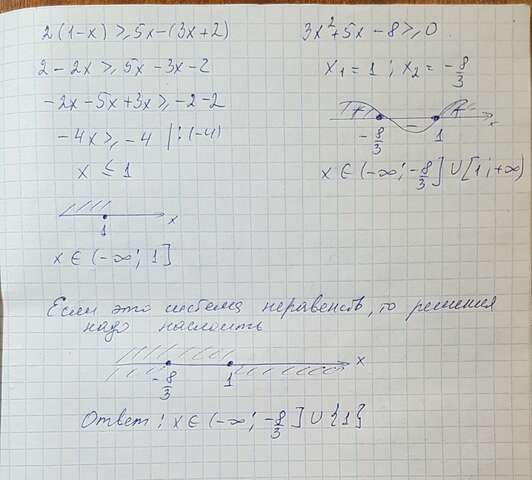 2(1-x) ≥ 5x-(3x+2)
2-2x ≥ 5x-3x-2
-2x-5x+3x ≥ -2-2
-4x ≥ -4 |:(-4)
x ≤ 1
1 x
x ∈ (-∞; 1]
3x²+5x-8 ≥ 0
x₁=1; x₂=-8/3
+ - +
-8/3 1 x
x ∈ (-∞; -8/3] ∪ [1; +∞)
Если это система неравенств, то решения
надо наслоить
-8/3 1 x
Ответ: x ∈ (-∞; -8/3] ∪ {1}